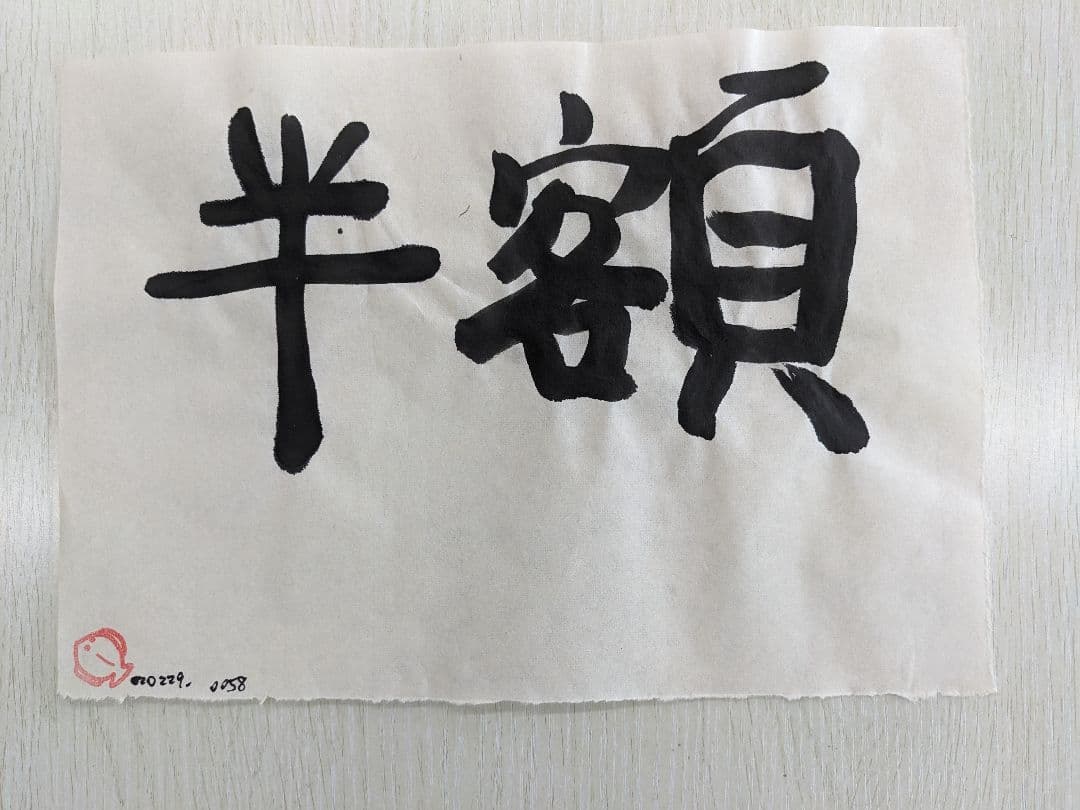 半額
220229. 0058